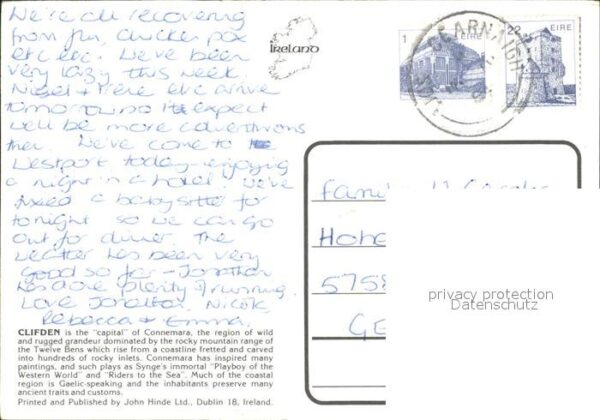 We're all recovering
from flu, chicken pox
etc etc. We've been
very lazy this week.
Nigel + Irene etc arrive
tomorrow so I expect
we'll be more adventurous
then. We've come to
Westport today - enjoying
a night in a hotel. We've
fixed a babysitter for
tonight so we can go
out for dinner. The
weather has been very
good so far - Jonathan
has done plenty of running.
Love Jonathan, Nicola,
Rebecca + Emma.
CLIFDEN is the "capital" of Connemara, the region of wild
and rugged grandeur dominated by the rocky mountain range of
the Twelve Bens which rise from a coastline fretted and carved
into hundreds of rocky inlets. Connemara has inspired many
paintings, and such plays as Synge's immortal "Playboy of the
Western World" and "Riders to the Sea". Much of the coastal
region is Gaelic-speaking and the inhabitants preserve many
ancient traits and customs.
Printed and Published by John Hinde Ltd., Dublin 18, Ireland.
IRELAND
1 EIRE
22 EIRE
CEARNAIGH
Hote
5758
GE
privacy protection
Datenschutz